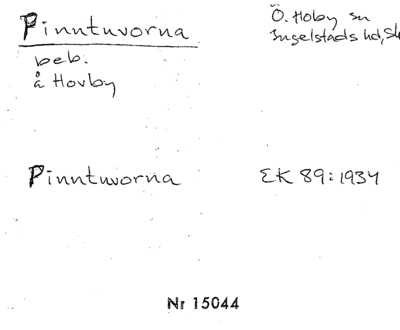 Pinntuvorna
Ö. Hoby sn
Ingelstads hd, Sk
beb.
å Hovby
Pinntuvorna
EK 89:1934
Nr 15044